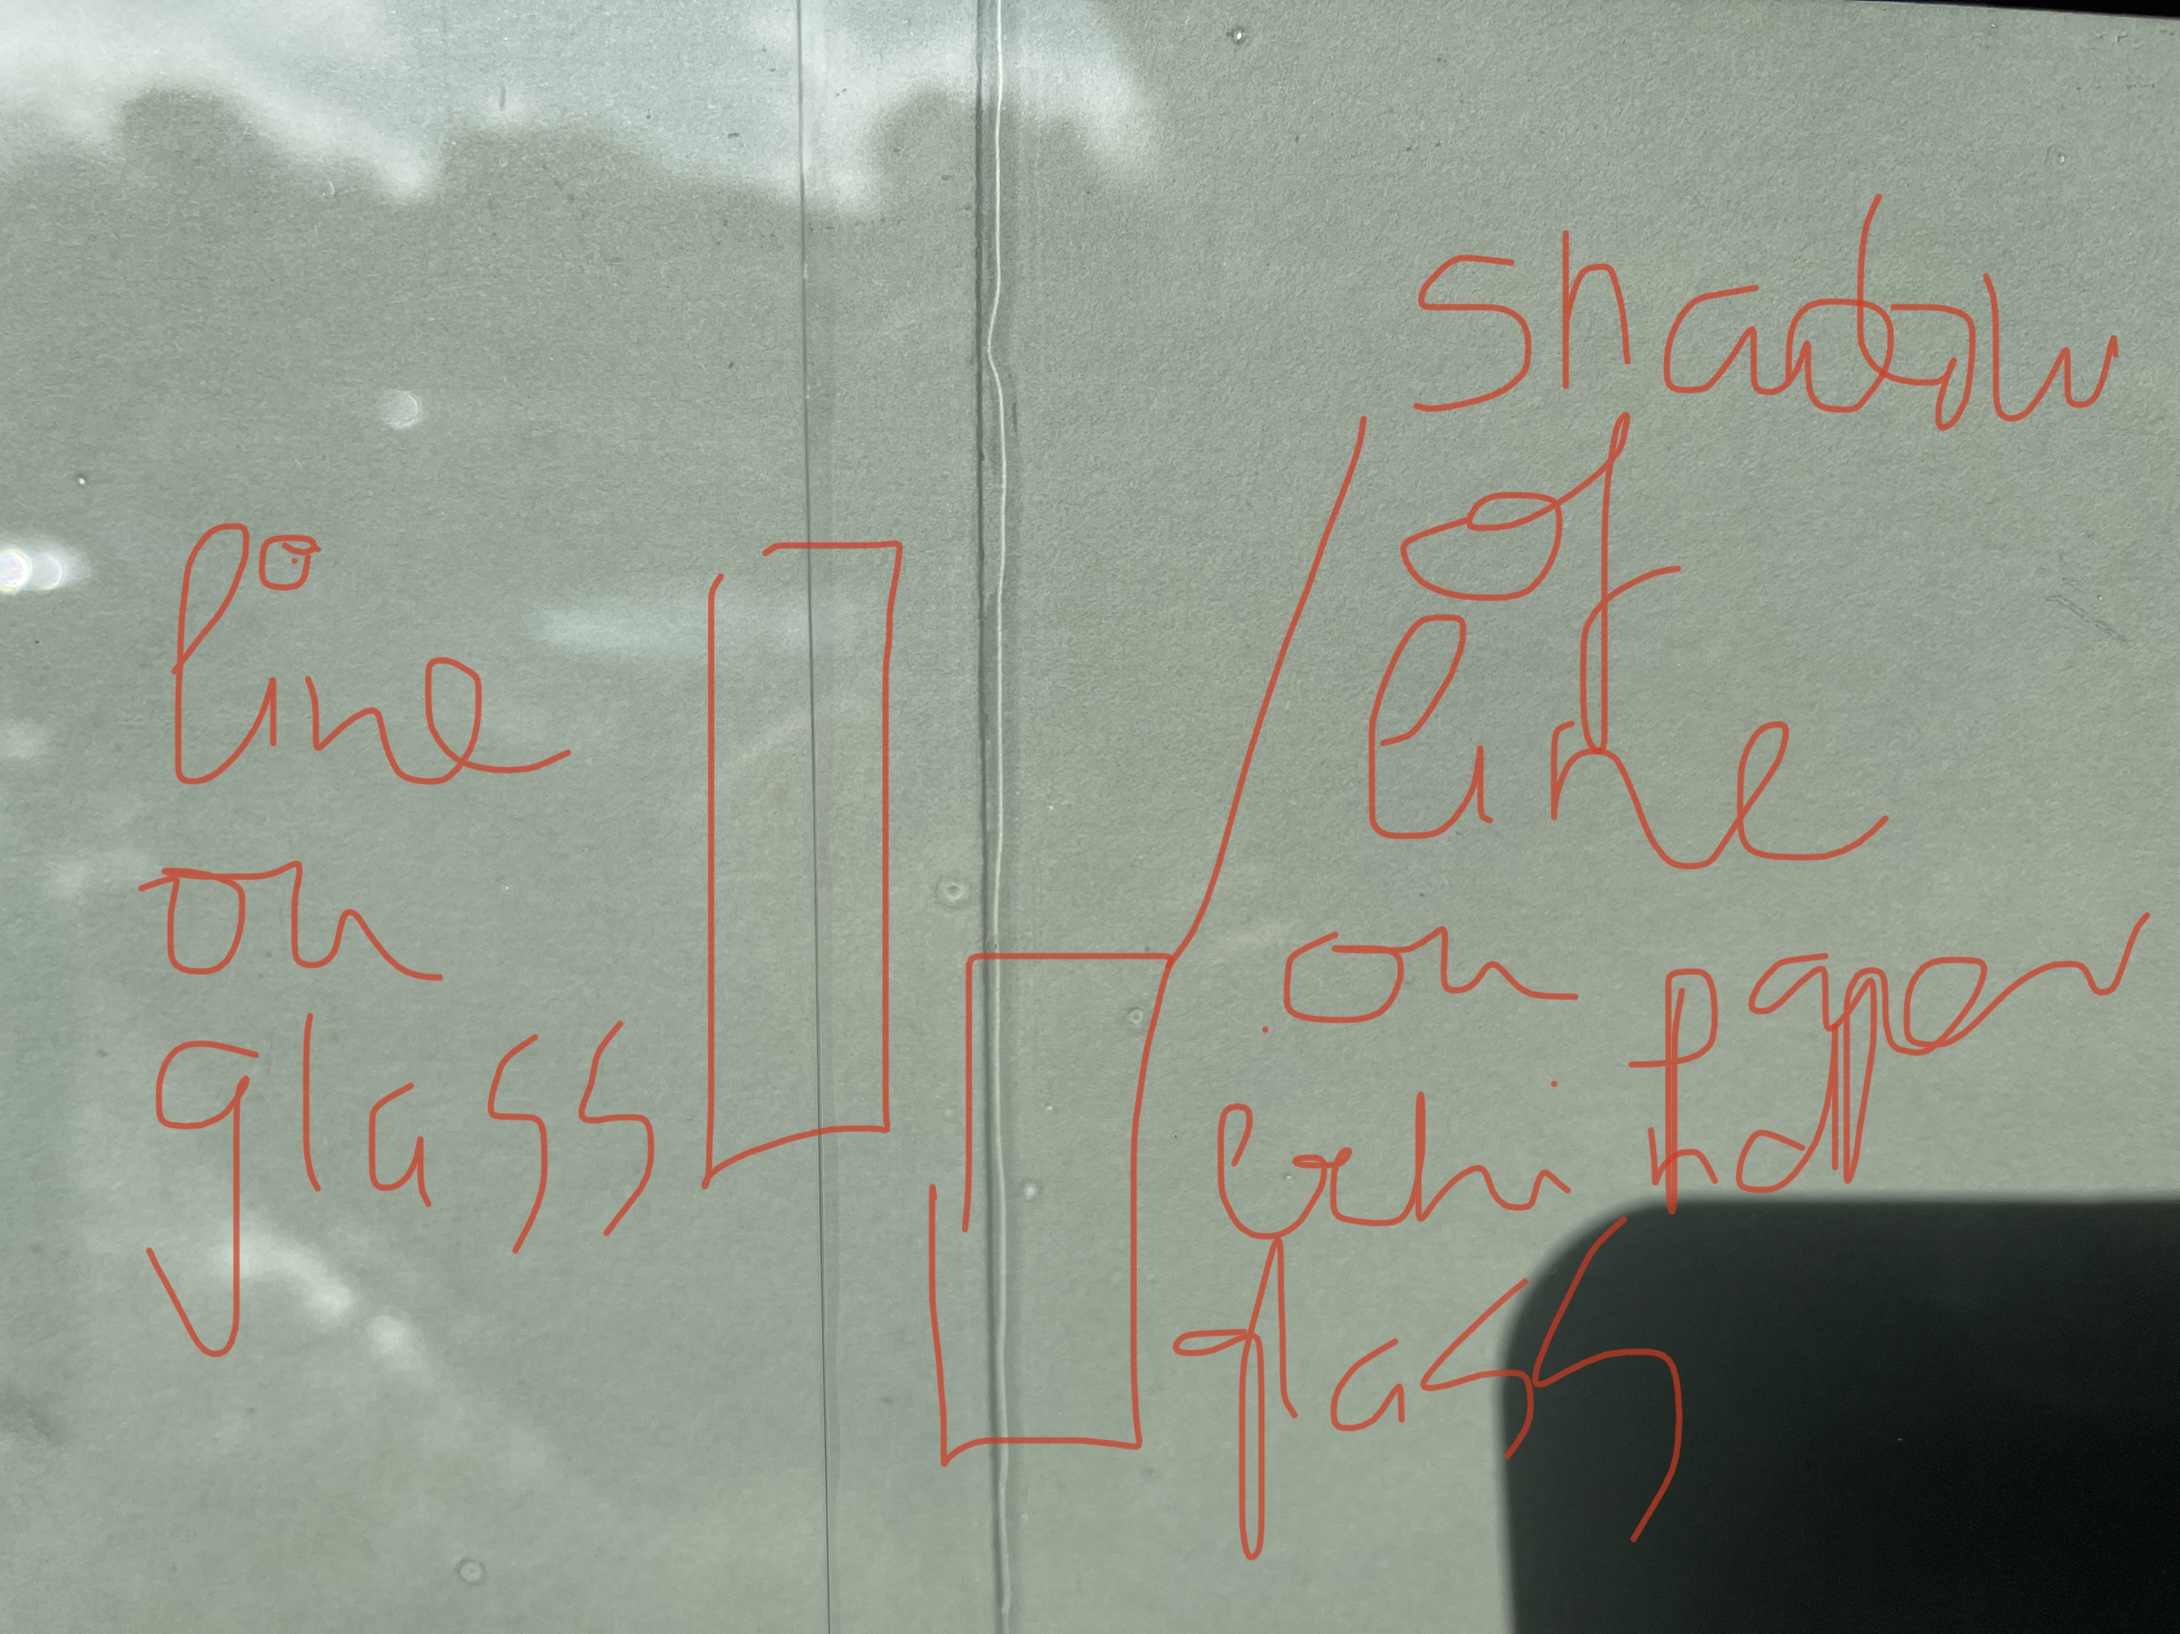 line
on
glass
shadow
of
line
on paper
behind
glass